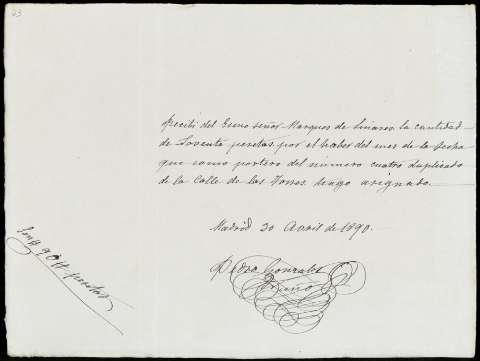 Recibi del Exmo señor Marques de Linares la cantidad
de Noventa pesetas por el haber del mes de la fecha
que como portero del número cuatro duplicado
de la Calle de las Torres tengo asignado.
Madrid 30 Avril de 1890.
Pedro Gonzalez
90 pesetas